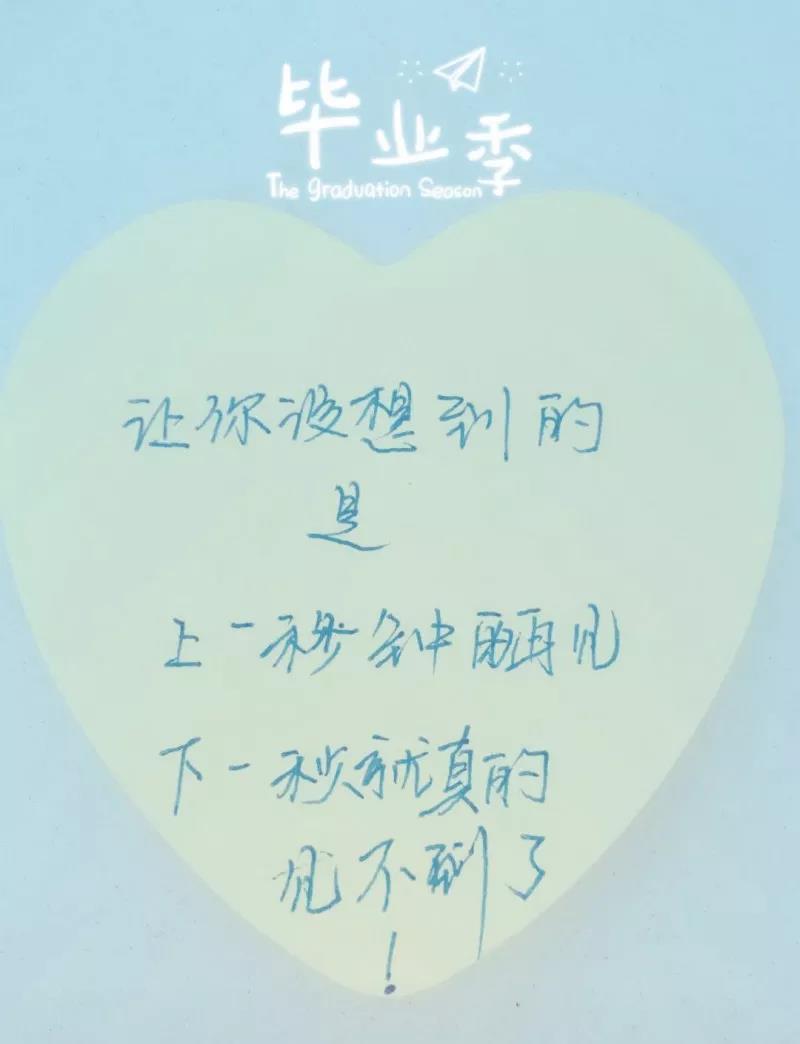 毕业季
The graduation Season
让你没想到的
是
上一秒钟再见
下一秒就真的
见不到了
!